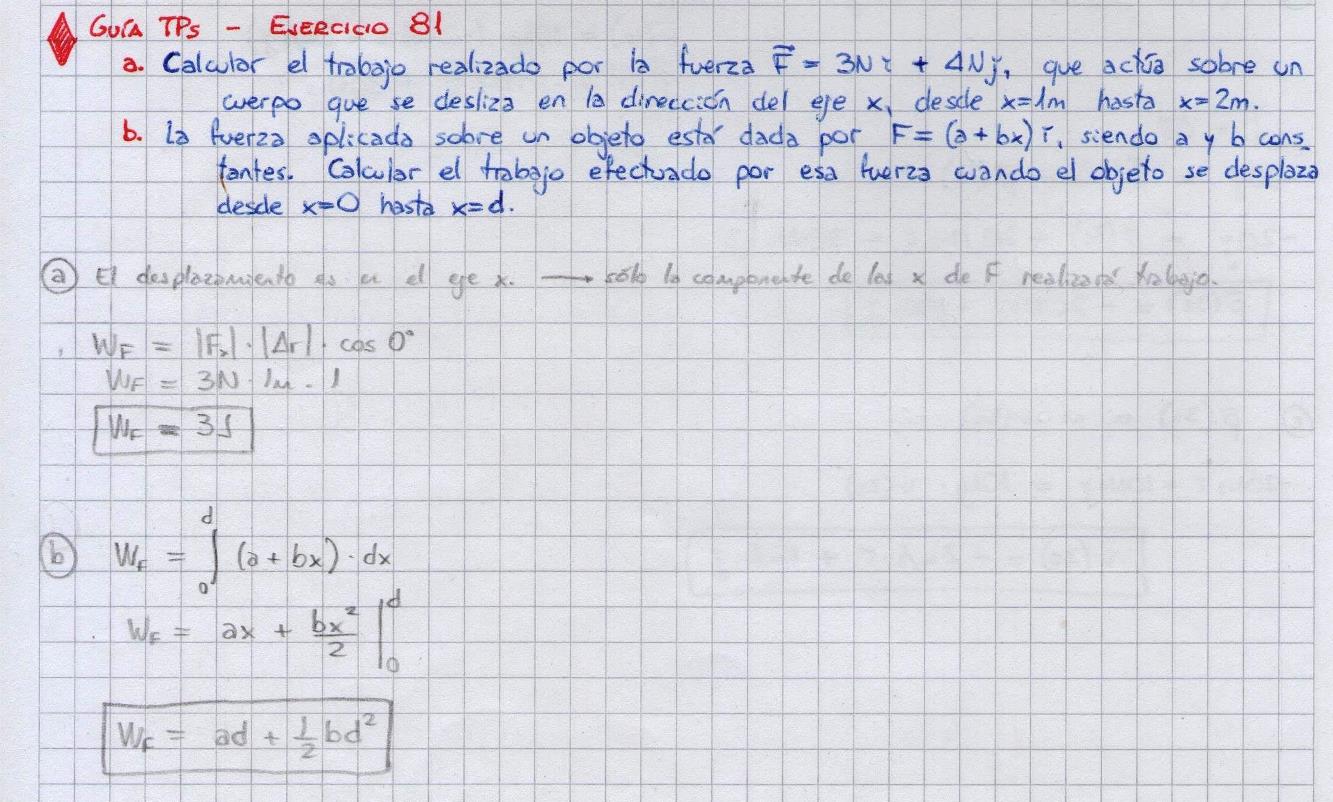 GUÍA TPs - EJERCICIO 81
a. Calcular el trabajo realizado por la fuerza F⃗ = 3N ĭ + 4N ǰ, que actúa sobre un
cuerpo que se desliza en la dirección del eje x, desde x=1m hasta x=2m.
b. La fuerza aplicada sobre un objeto está dada por F=(a+bx) ĭ, siendo a y b cons_
tantes. Calcular el trabajo efectuado por esa fuerza cuando el objeto se desplaza
desde x=0 hasta x=d.
ⓐ El desplazamiento es en el eje x. → sólo la componente de las x de F realizará trabajo.
W_F = |Fₓ| · |Δr| · cos 0°
W_F = 3N · 1m · 1
W_F = 3J
ⓑ W_F = ∫₀ᵈ (a + bx) · dx
W_F = ax + bx²/2 |₀ᵈ
W_F = ad + 1/2 bd²